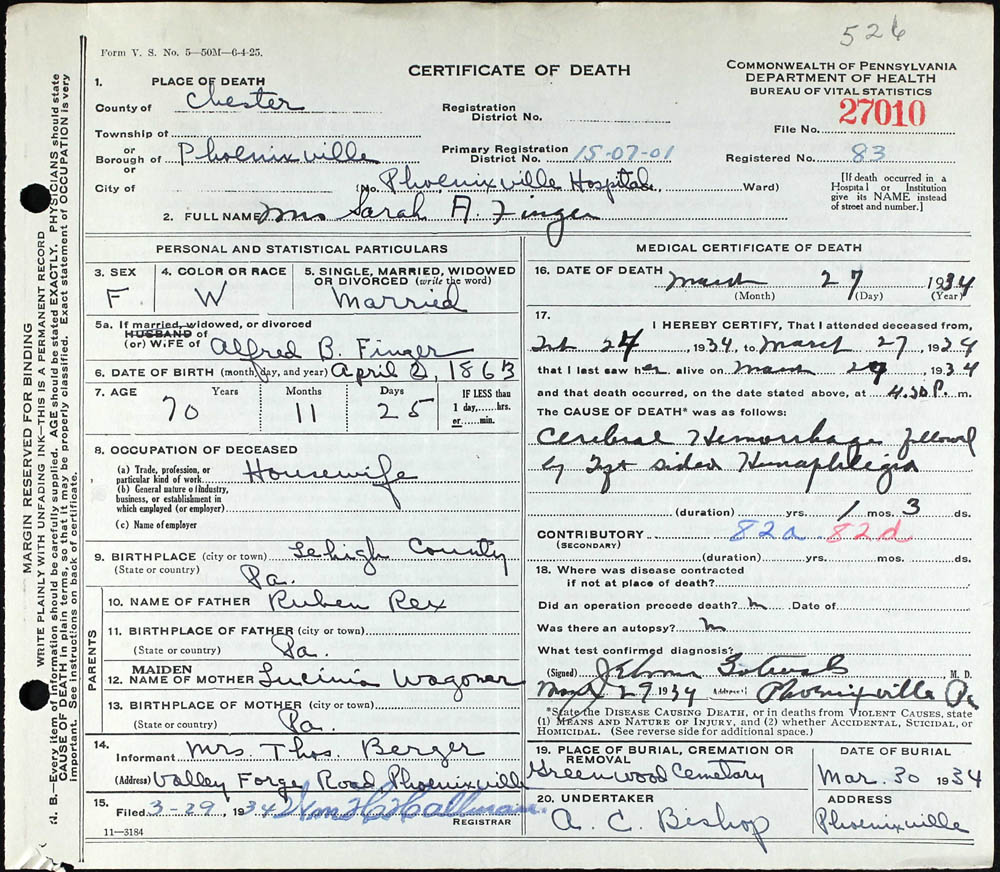 526
Form V. S. No. 5—50M—6-4-25.
CERTIFICATE OF DEATH
COMMONWEALTH OF PENNSYLVANIA
DEPARTMENT OF HEALTH
BUREAU OF VITAL STATISTICS
1. PLACE OF DEATH
County of Chester
Registration District No.
File No. 27010
Township of
or
Borough of Phoenixville
Primary Registration District No. 15-07-01
Registered No. 83
or
City of
(No. Phoenixville Hospital, Ward)
[If death occurred in a Hospital or Institution give its NAME instead of street and number.]
2. FULL NAME Mrs Sarah A. Finger
PERSONAL AND STATISTICAL PARTICULARS
3. SEX F
4. COLOR OR RACE W
5. SINGLE, MARRIED, WIDOWED OR DIVORCED (write the word) Married
5a. If married, widowed, or divorced
HUSBAND of
(or) WIFE of Alfred B. Finger
6. DATE OF BIRTH (month, day, and year) April 2, 1863
7. AGE Years 70 Months 11 Days 25 IF LESS than 1 day,......hrs. or......min.
8. OCCUPATION OF DECEASED
(a) Trade, profession, or particular kind of work Housewife
(b) General nature of industry, business, or establishment in which employed (or employer)
(c) Name of employer
9. BIRTHPLACE (city or town) Lehigh County
(State or country) Pa.
PARENTS
10. NAME OF FATHER Ruben Rex
11. BIRTHPLACE OF FATHER (city or town)
(State or country) Pa.
12. MAIDEN NAME OF MOTHER Lucinia Wagoner
13. BIRTHPLACE OF MOTHER (city or town)
(State or country) Pa.
14. Informant Mrs. Thos. Berger
(Address) Valley Forge Road Phoenixville
15. Filed 3-29, 1934 Wm H Hallman.
REGISTRAR
11—3184
MEDICAL CERTIFICATE OF DEATH
16. DATE OF DEATH March 27 1934
(Month) (Day) (Year)
17. I HEREBY CERTIFY, That I attended deceased from,
Feb 24, 1934, to March 27, 1934
that I last saw her alive on March 27, 1934
and that death occurred, on the date stated above, at 4.30 P. m.
The CAUSE OF DEATH* was as follows:
Cerebral Hemorrhage followed
by sided
(duration) yrs. 1 mos. 3 ds.
CONTRIBUTORY 82a 82d
(SECONDARY)
(duration) yrs. mos. ds.
18. Where was disease contracted
if not at place of death?
Did an operation precede death? Date of
Was there an autopsy?
What test confirmed diagnosis?
(Signed) M. D.
29 1934 (Address) Phoenixville Pa
*State the DISEASE CAUSING DEATH, or in deaths from VIOLENT CAUSES, state
(1) MEANS AND NATURE OF INJURY, and (2) whether ACCIDENTAL, SUICIDAL, or
HOMICIDAL. (See reverse side for additional space.)
19. PLACE OF BURIAL, CREMATION OR REMOVAL
Greenwood Cemetary
DATE OF BURIAL
Mar. 30 1934
20. UNDERTAKER
A. C. Bishop
ADDRESS
Phoenixville
MARGIN RESERVED FOR BINDING
WRITE PLAINLY WITH UNFADING INK—THIS IS A PERMANENT RECORD
N. B.—Every item of information should be carefully supplied. AGE should be stated EXACTLY. PHYSICIANS should state
CAUSE OF DEATH in plain terms, so that it may be properly classified. Exact statement of OCCUPATION is very
important. See instructions on back of certificate.